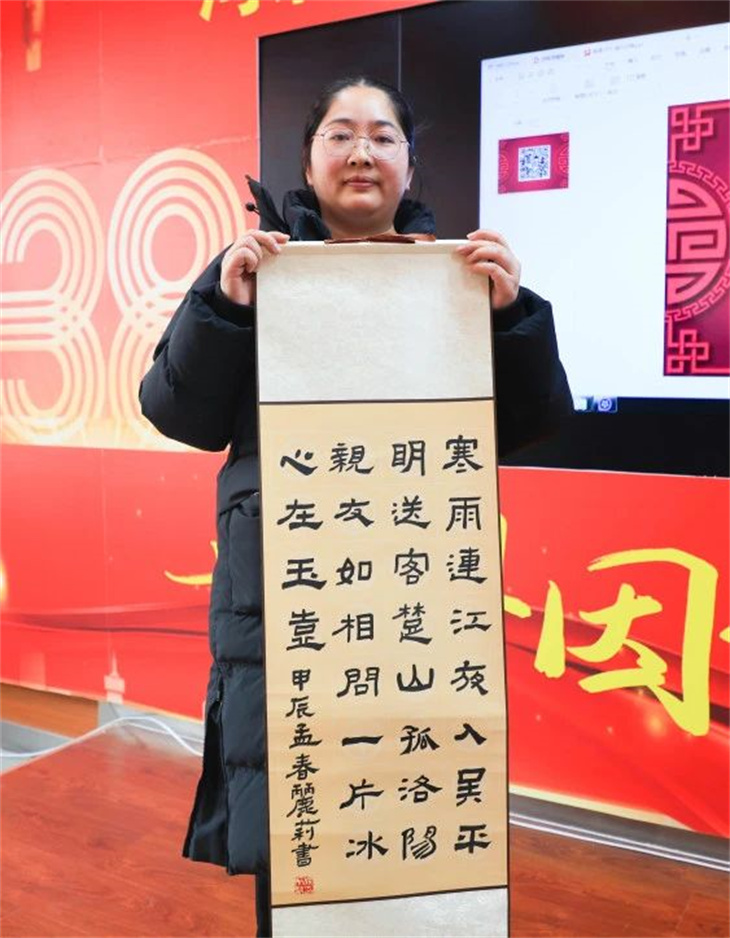 38
因
寒雨連江夜入吴平
明送客楚山孤洛陽
親友如相問一片冰
心在玉壺甲辰孟春麗莉書